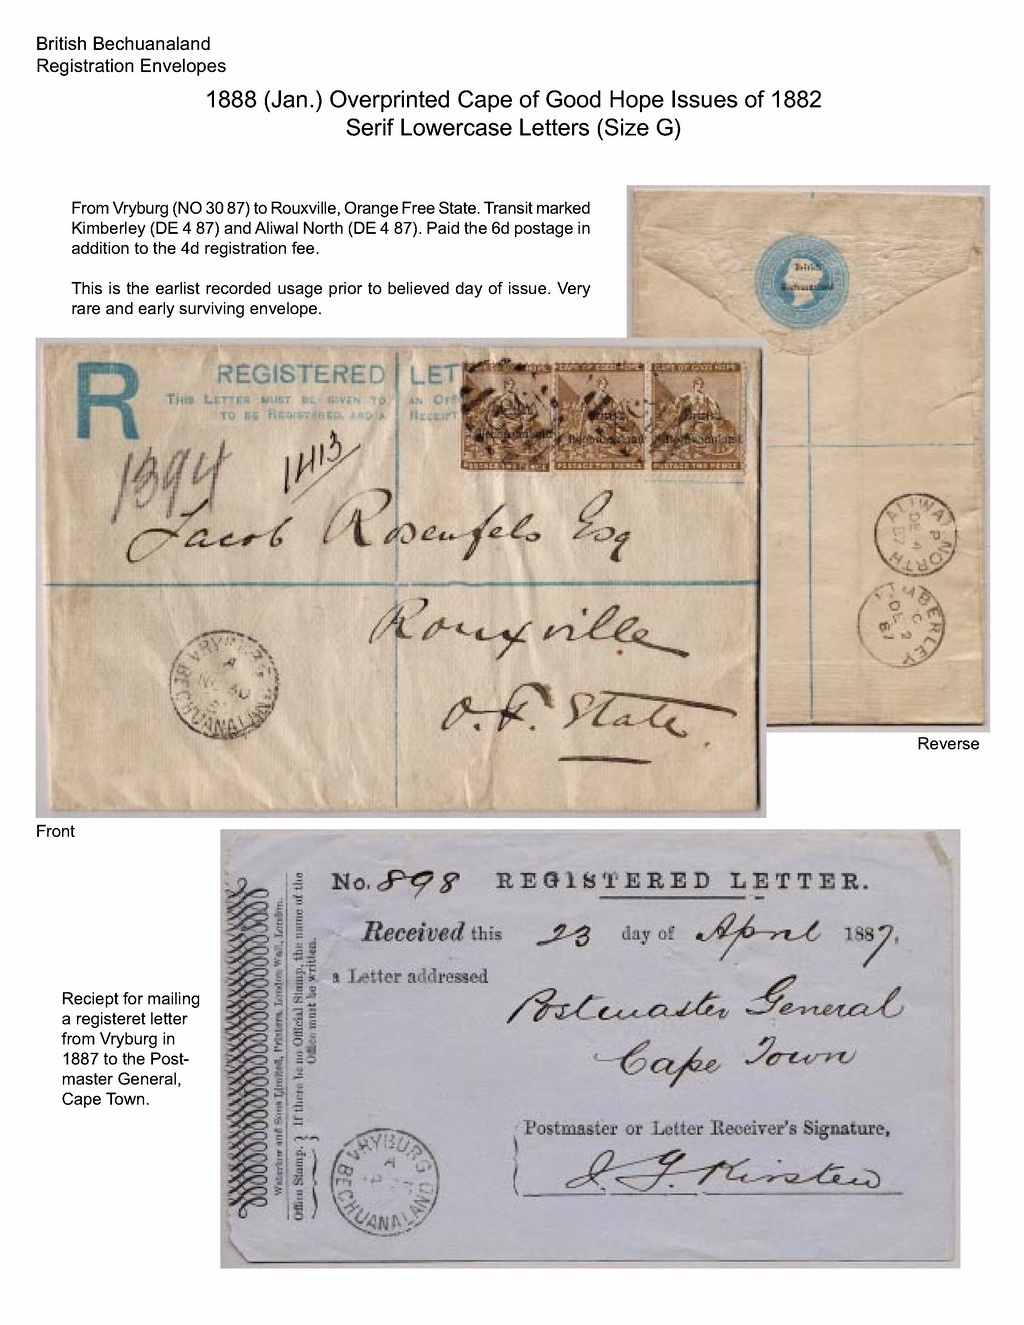 British Bechuanaland
Registration Envelopes
1888 (Jan.) Overprinted Cape of Good Hope Issues of 1882
Serif Lowercase Letters (Size G)
From Vryburg (NO 30 87) to Rouxville, Orange Free State. Transit marked
Kimberley (DE 4 87) and Aliwal North (DE 4 87). Paid the 6d postage in
addition to the 4d registration fee.
This is the earlist recorded usage prior to believed day of issue. Very
rare and early surviving envelope.
British
Bechuanaland
ALIWAL NORTH
P
DE 4
87
KIMBERLEY
C
DE 2
87
Reverse
R
REGISTERED LET
THIS LETTER MUST BE GIVEN TO AN OFF
TO BE REGISTERED, AND A RECEIPT
CAPE OF GOOD HOPE CAPE OF GOOD HOPE
British British
Bechuanaland Bechuanaland
POSTAGE TWO PENCE POSTAGE TWO PENCE POSTAGE TWO PENCE
1394
1413
Jacob Rosenfels Esq
Rouxville
O. F. State.
VRYBURG
A
NO 30
BECHUANALAND
Front
No. 898 REGISTERED LETTER.
Received this 23 day of April 1887,
a Letter addressed
Postmaster General
Cape Town
Postmaster or Letter Receiver's Signature,
J. G. Kirsten
VRYBURG
A
BECHUANALAND
Waterlow and Sons Limited, Printers, London Wall, London.
Office Stamp. } If there be no Official Stamp, the name of the
Office must be written.
Reciept for mailing
a registeret letter
from Vryburg in
1887 to the Post-
master General,
Cape Town.